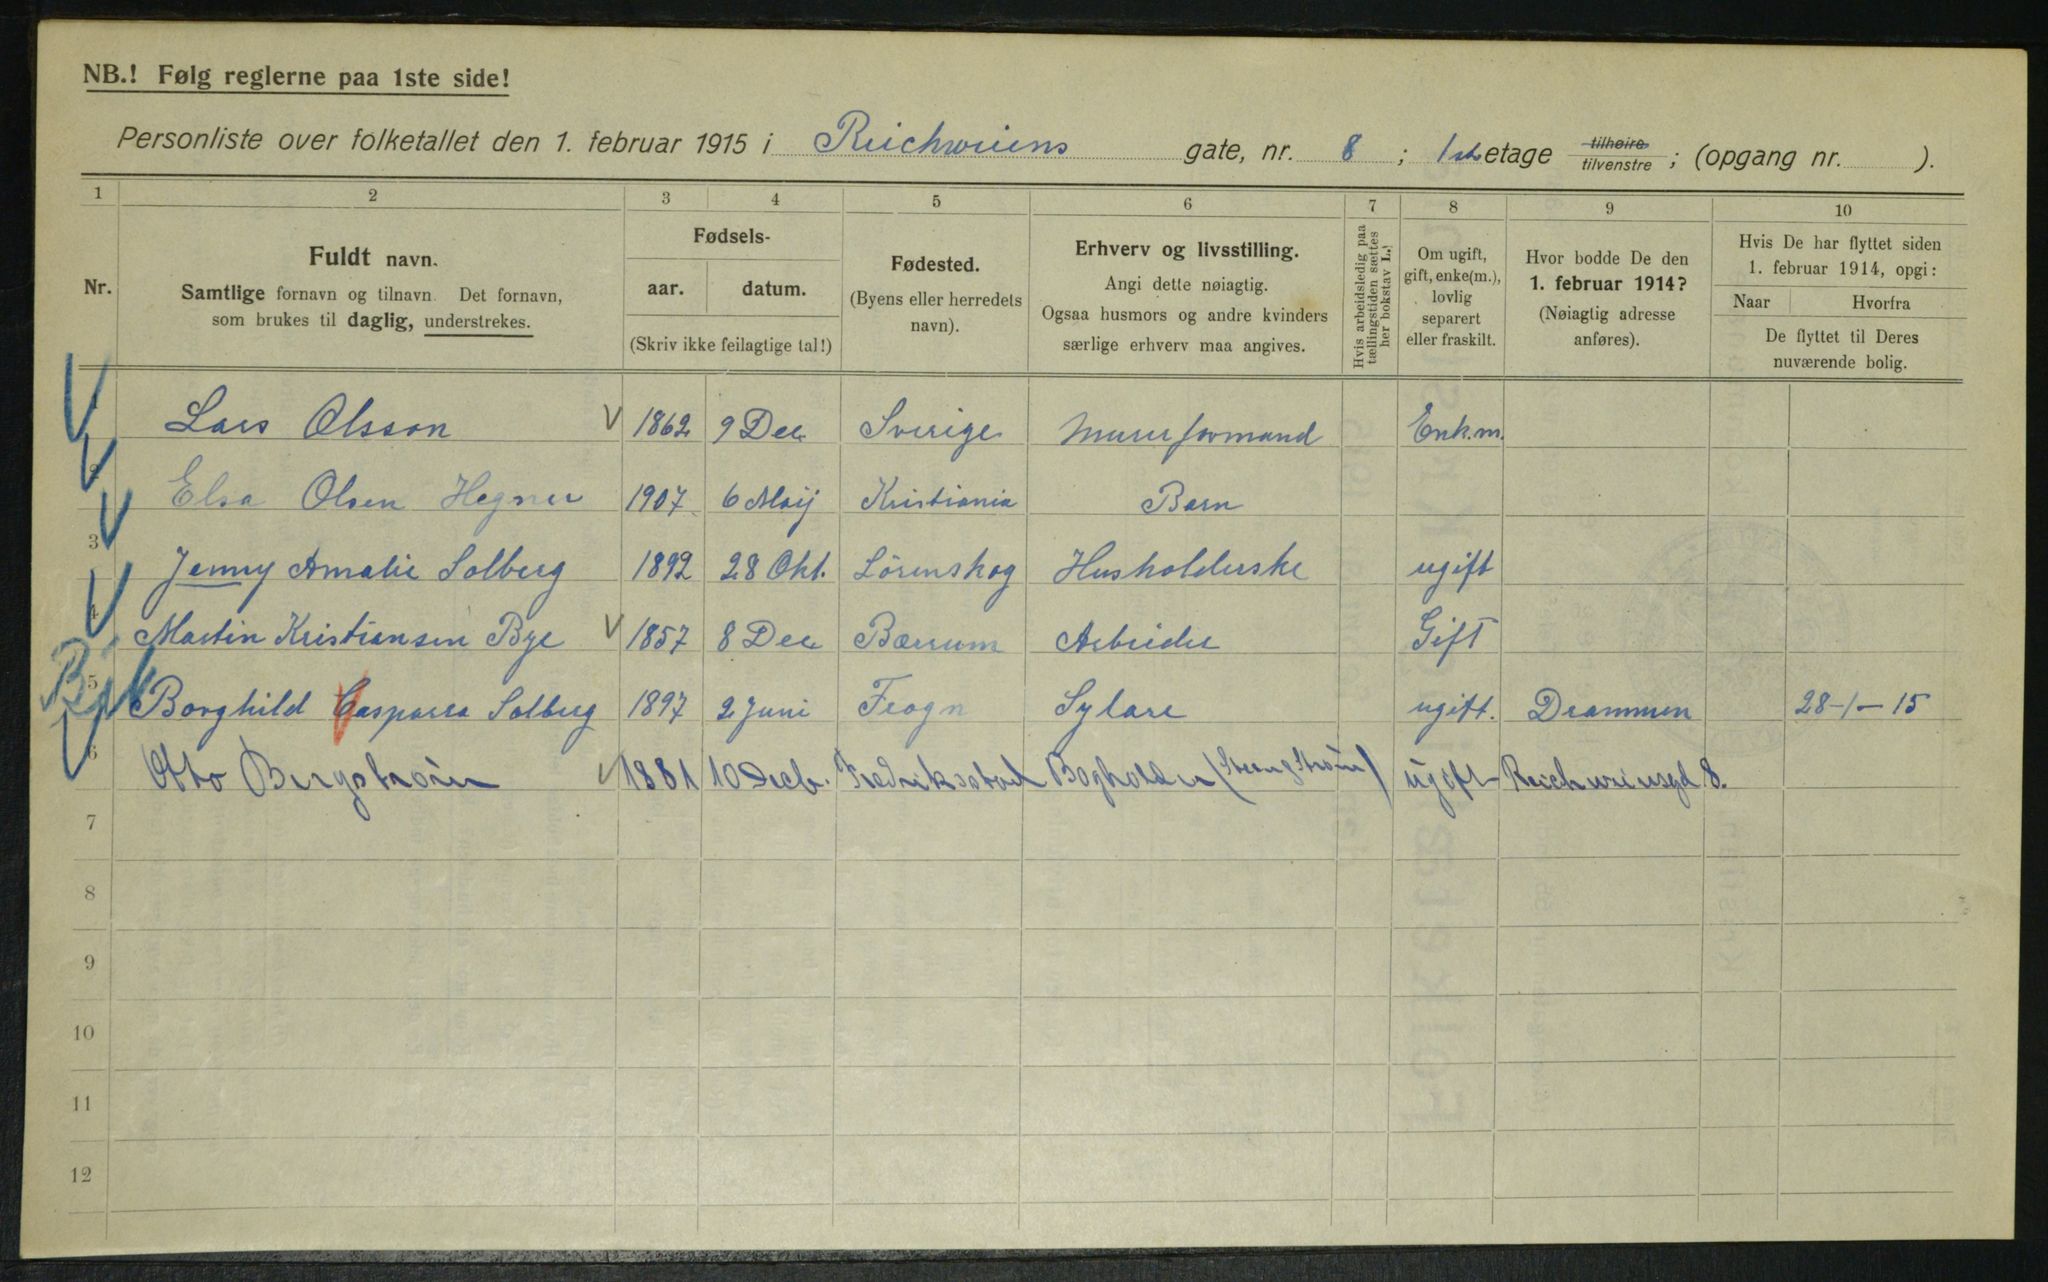 NB.! Følg reglerne paa 1ste side!
Personliste over folketallet den 1. februar 1915 i Reichweins gate, nr. 8 ; 1ste etage tilhøire tilvenstre ; (opgang nr. ).
1 2 3 4 5 6 7 8 9 10
Nr.
Fuldt navn.
Samtlige fornavn og tilnavn. Det fornavn,
som brukes til daglig, understrekes.
Fødsels-
aar. datum.
(Skriv ikke feilagtige tal!)
Fødested.
(Byens eller herredets
navn).
Erhverv og livsstilling.
Angi dette nøiagtig.
Ogsaa husmors og andre kvinders
særlige erhverv maa angives.
Hvis arbeidsledig paa
tællingstiden sættes
her bokstav L.!
Om ugift,
gift, enke(m.),
lovlig
separert
eller fraskilt.
Hvor bodde De den
1. februar 1914?
(Nøiagtig adresse
anføres).
Hvis De har flyttet siden
1. februar 1914, opgi:
Naar Hvorfra
De flyttet til Deres
nuværende bolig.
1 Lars Olsson 1862 9 Dec Sverige Murerformand Enk.m.
2 Elsa Olsen Hegner 1907 6 Maij Kristiania Barn
3 Jenny Amalie Solberg 1892 28 Okt. Lörenskog Husholderske ugift
4 Martin Kristiansen Bye 1857 8 Dec Bærrum Arbeider Gift
5 Borghild Casparra Solberg 1897 2 Juni Frogn Sylære ugift. Drammen 28-1-15
6 Otto Bergstrøm 1881 10 Decb. Fredriksstad Bogholder ugift Reichweinsgd 8.
7
8
9
10
11
12